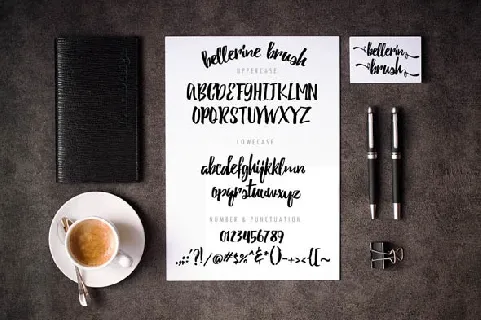 bellerine brush
UPPERCASE
ABCDEFGHIJKLMN
OPQRSTUVWXYZ
LOWECASE
abcdefghijklmn
opqrstuvwxyz
NUMBER & PUNCTUATION
0123456789
.,:;'?!/@#$%^&*()-+<>{[~
bellerin
brush